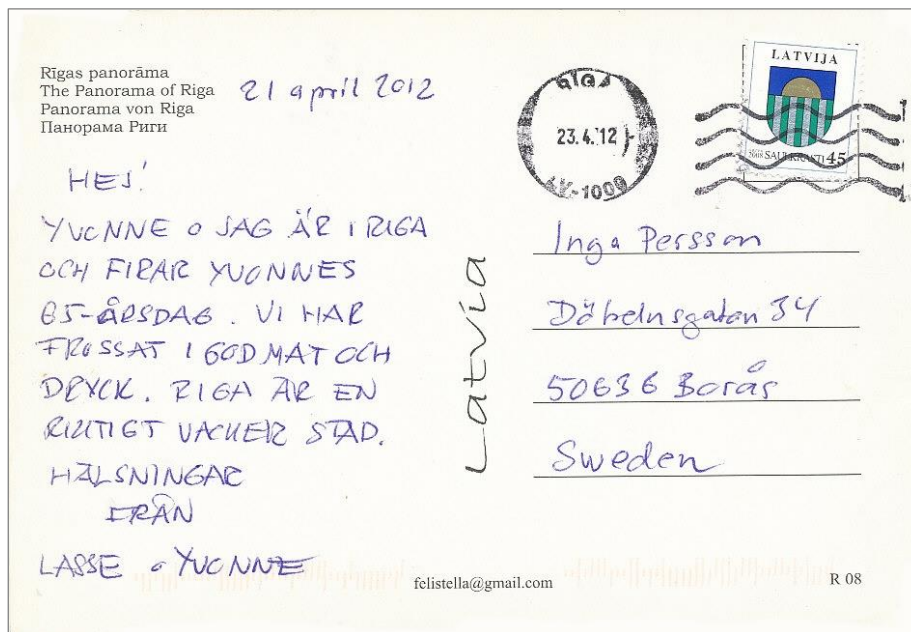 Rīgas panorāma
The Panorama of Riga
Panorama von Riga
Панорама Риги
21 april 2012
HEJ!
YVONNE o JAG ÄR I RIGA
OCH FIRAR YVONNES
65-ÅRSDAG. VI HAR
FROSSAT I GOD MAT OCH
DRYCK. RIGA ÄR EN
RIKTIGT VACKER STAD.
HÄLSNINGAR
FRÅN
LASSE o YVONNE
RIGA
23.4.12
LV-1000
LATVIJA
2008 SAULKRASTI 45
Latvia
Inga Persson
Döbelnsgatan 34
50636 Borås
Sweden
felistella@gmail.com
R 08